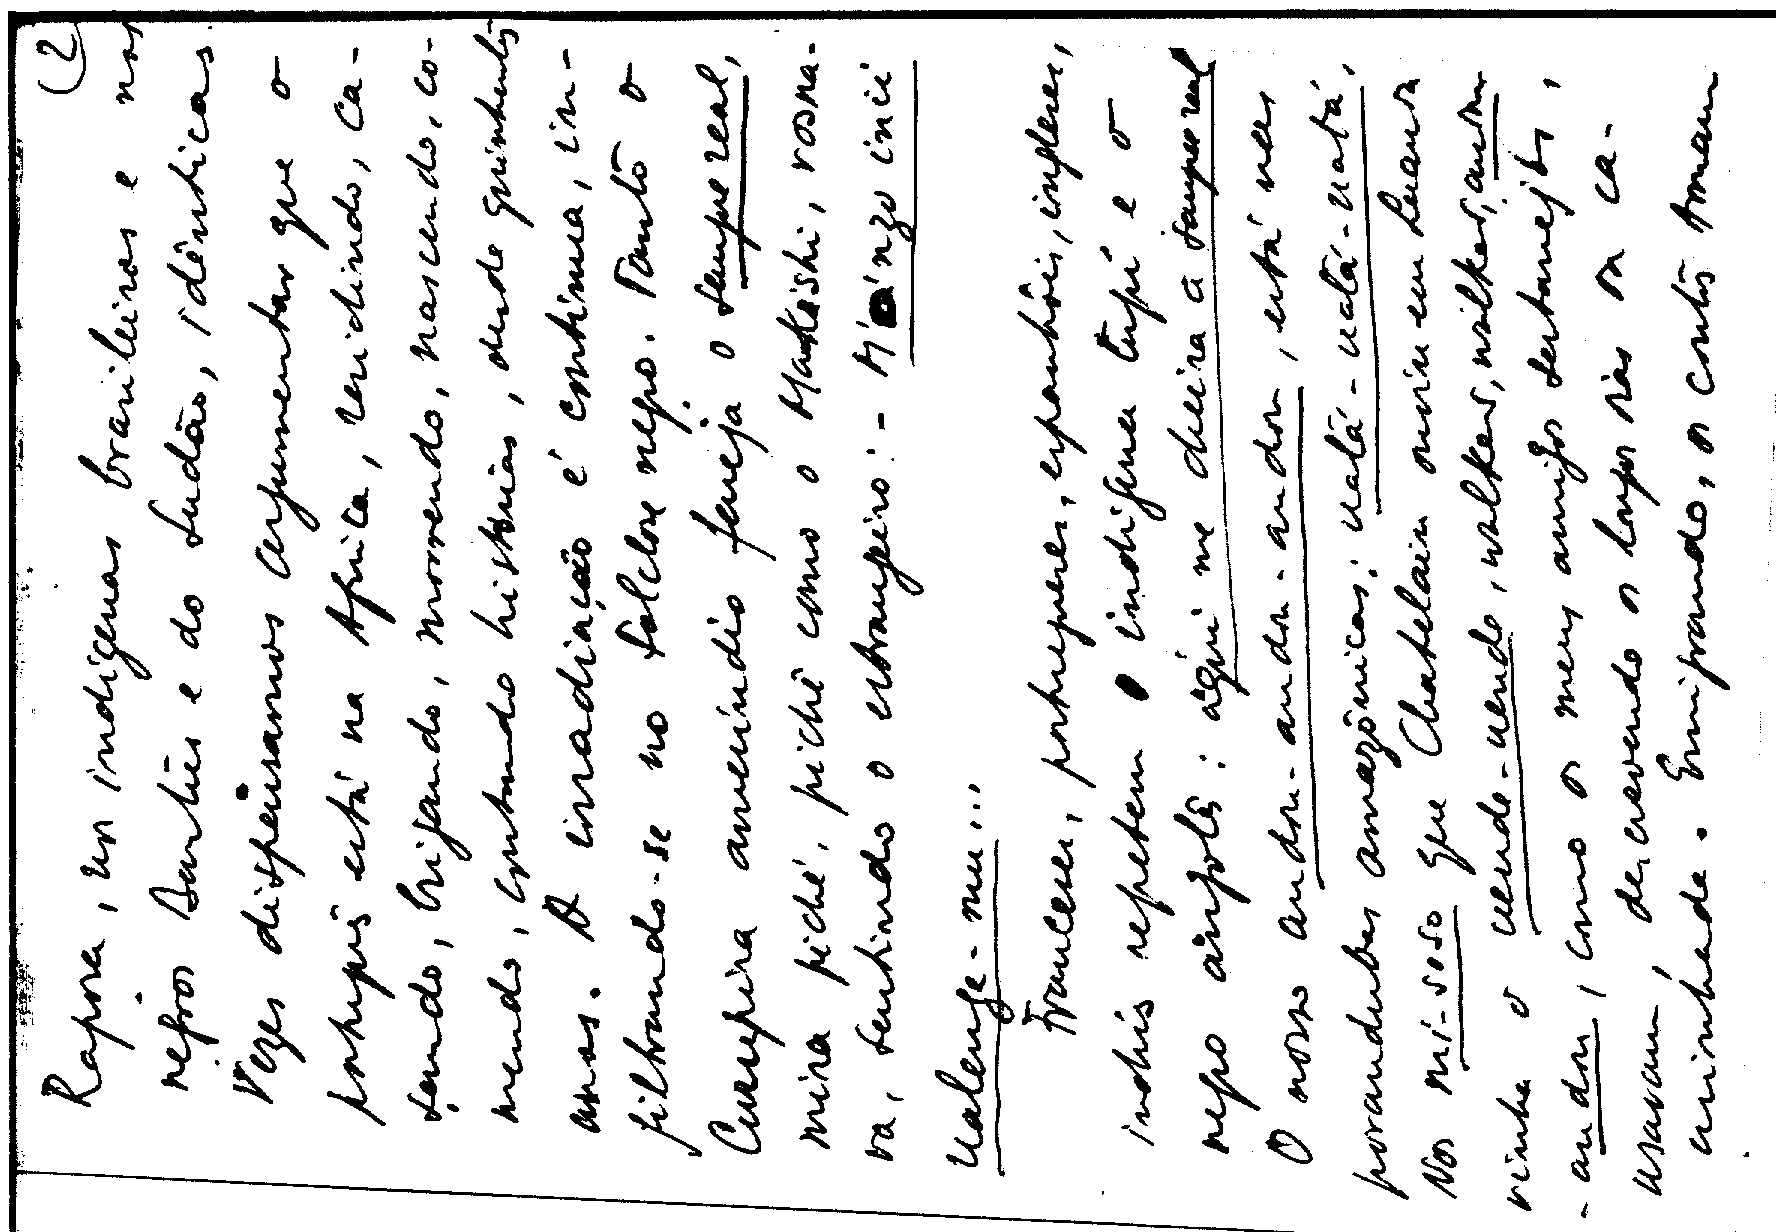 (2
Raposa, nos indígenas brasileiros e nos
negros Bantús e do Sudão, idênticas.
Vezes dispensamos argumentar que o
português está na Africa, residindo, ca-
sando, brigando, morrendo, nascendo, co-
mendo, contando histórias, desde quinhentos
anos. A irradiação é contínua, in-
filtrando-se no folclore negro. Tanto o
Curupira ameríndio fareja o sangue real,
mira piché, piché como o Makishi, rosna-
va, sentindo o estrangeiro: - Mainzo inii
ualenge-nu...
Franceses, portugueses, espanhóis, ingleses,
indús repetem o indígena tupí e o
negro angolês: áqui me cheira a sangue real
O nosso andou-andou-andou, está nas
porandubas amazônicas: uatá-uatá-uatá.
Nos mi-soso que Chatelain ouviu em Luanda
vinha o uendo-uendo, walked, walked, andou
-andou, como os meus amigos sertanejos,
usavam, descrevendo as longas vias da ca-
minhada. Emigrando, os contos tomam